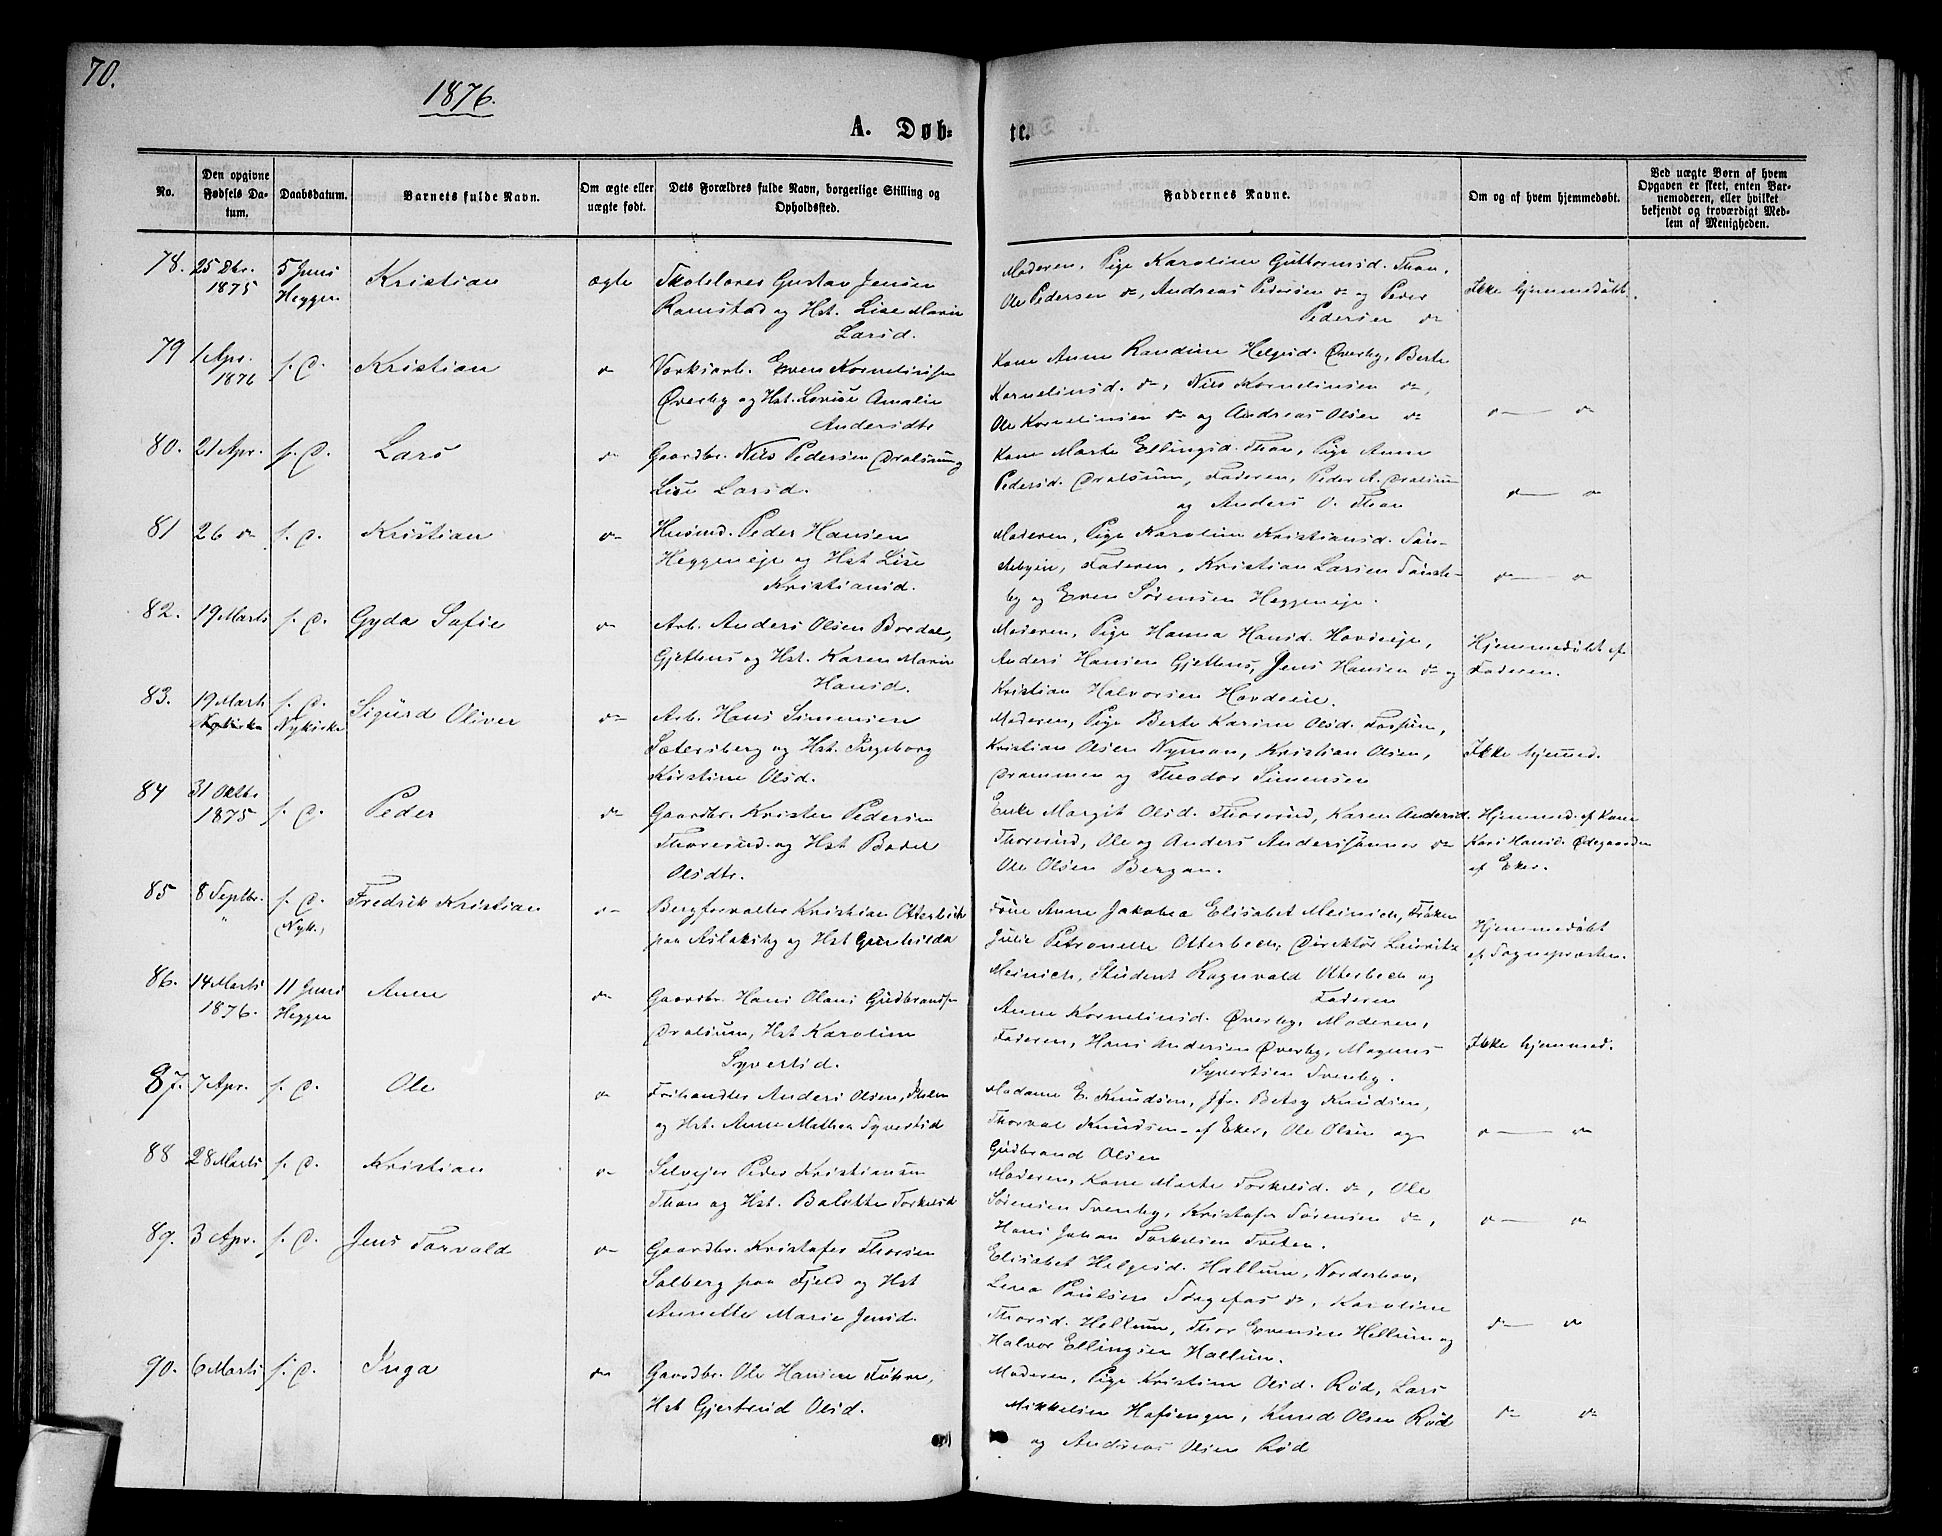 70.
1876.
A. Døb-
te.
No.
Den opgivne Fødsels Da-tum.
Daabsdatum.
Barnets fulde Navn.
Om ægte eller uægte født.
Dets Forældres fulde Navn, borgerlige Stilling og Opholdssted.
Faddernes Navne.
Om og af hvem hjemmedøbt.
Ved uægte Børn af hvem Opgaven er skeet, enten Bar-nemoderen, eller hvilket bekjendt og troværdigt Med-lem af Menigheden.
78. 25 Dbr. 1875 5 Juni Heggen Kristian ægte
Skolelærer Gustav Jensen
Ramstad og Hst. Lise Marie
Larsd.
Moderen, Pige Karoline Guttormsd. Thon,
Ole Pedersen do, Andreas Pedersen do og Peder
Pedersen do
Ikke hjemmedøbt.
79 1 Apr. 1876 s. D. Kristian do
Værksarb. Even Korneliussen
Øverby og Hst. Lovise Amalie
Andersdtr
Kone Anne Randine Helgesd. Øverby, Berte
Korneliusd. do, Nils Korneliusen do,
Ole Korneliusen do og Andreas Olsen do
do do
80. 21 Apr. s. D. Lars do
Gaardbr. Nils Pedersen Dralsrum og
Lise Larsd.
Kone Marte Ellingsd. Thon, Pige Anne
Pedersd. Dralsrum, Faderen, Peder A. Dralsrum
og Anders O. Thon
do do
81 26 do s. D. Kristian do
Husmd. Peder Hansen
Heggeneje og Hst Lise
Kristiansd.
Moderen, Pige Karoline Kristiansd. Tøn-
steby og Even Sørensen Heggeneje.
do do
82. 19 Marts s. D. Gyda Sofie do
Arb. Anders Olsen Bordal,
Gjettens og Hst. Karen Marie
Hansd.
Moderen, Pige Hanna Hansd. Hovdeeje,
Anders Hansen Gjettens, Jens Hansen do og
Kristian Halvorsen Hovdeeie.
Hjemmedøbt af
Faderen.
83. 19 Marts s. D. Nykirke Sigurd Oliver do
Arb. Hans Simensen
Sætersberg og Hst. Ingeborg
Kirstine Olsd.
Moderen, Pige Berte Karine Olsd. Fossum,
Kristian Olsen Nyman, Kristian Olsen,
Drammen og Theodor Simensen
Ikke hjemmed.
84 31 Oktbr 1875 s. D. Peder do
Gaardbr. Kristen Pedersen
Thorsrud og Hst Bodel
Olsdtr.
Enke Margit Olsd. Thorsrud, Karen Andersd.
Thorsrud, Ole og Anders Anderssønner do
Ole Olsen Bergan.
Hjemmed. af Kone
Kari Hansd. Ødegaarden
af Eker.
85 8 Septbr. " s. D. (Nyk.) Fredrik Kristian do
Bergforvalter Kristian Otterbech
paa Aslaksby og Hst Gunhilda
Frue Anne Jakobea Elisabet Meinich, Frøken
Julie Petronelle Otterbech, Direktør Lauritz
Meinich, Student Ragnvald Otterbech og
Faderen
Hjemmedøbt
af Sognepræsten.
86. 14 Marts 1876. 11 Juni Heggen Anne do
Gaardbr. Hans Olaus Gudbrandsen
Dralsrum, Hst Karoline
Syvertsd.
Anne Korneliusd. Øverby, Moderen,
Faderen, Hans Andersen Øverby, Magnus
Syvertsen Svenby.
Ikke hjemmed.
87. 7 Apr. s. D. Ole do
Frihandler Anders Olsen, Skalen
og Hst. Anne Mathea Syvertsd
Madame E. Knudsen, Jfr. Betsy Knudsen,
Thorval Knudsen af Eker, Ole Olsen og
Gudbrand Olsen
do do
88 28 Marts s. D. Kristian do
Selvejer Peder Kristiansen
Thon og Hst. Bolette Torkelsd
Moderen, Kone Marte Torkelsd. do, Ole
Sørensen Svenby, Kristofer Sørensen do,
Hans Johan Torkelsen Tveten.
do do
89. 3 Apr. s. D. Jens Torvald do
Gaardbr. Kristofer Thorsen
Solberg paa Fjeld og Hst
Annette Marie Jensd.
Elisabet Helgesd. Hallum, Norderhov,
Lena Paulsen do, Karoline
Thorsd. Hellum, Thor Evensen Hellum og
Halvor Ellingsen Hallum.
do do
90. 6 Marts s. D. Inga do
Gaardbr. Ole Hansen
Hst Gjertrud Olsd.
Moderen, Pige Kristine Olsd. Rød, Lars
Mikkelsen Hafsengen, Knud Olsen Rød
og Andreas Olsen Rød
do do